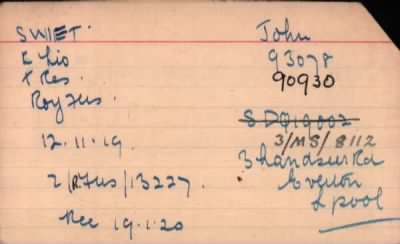 SWIET. John
E Lio 93078
T Res. 90930
Roy Fus.
SDQ19002
12.11.19. 3/MS/8112
3 Rd
2/R.Fus/13227. Everton
L pool
Rec 19.1.20